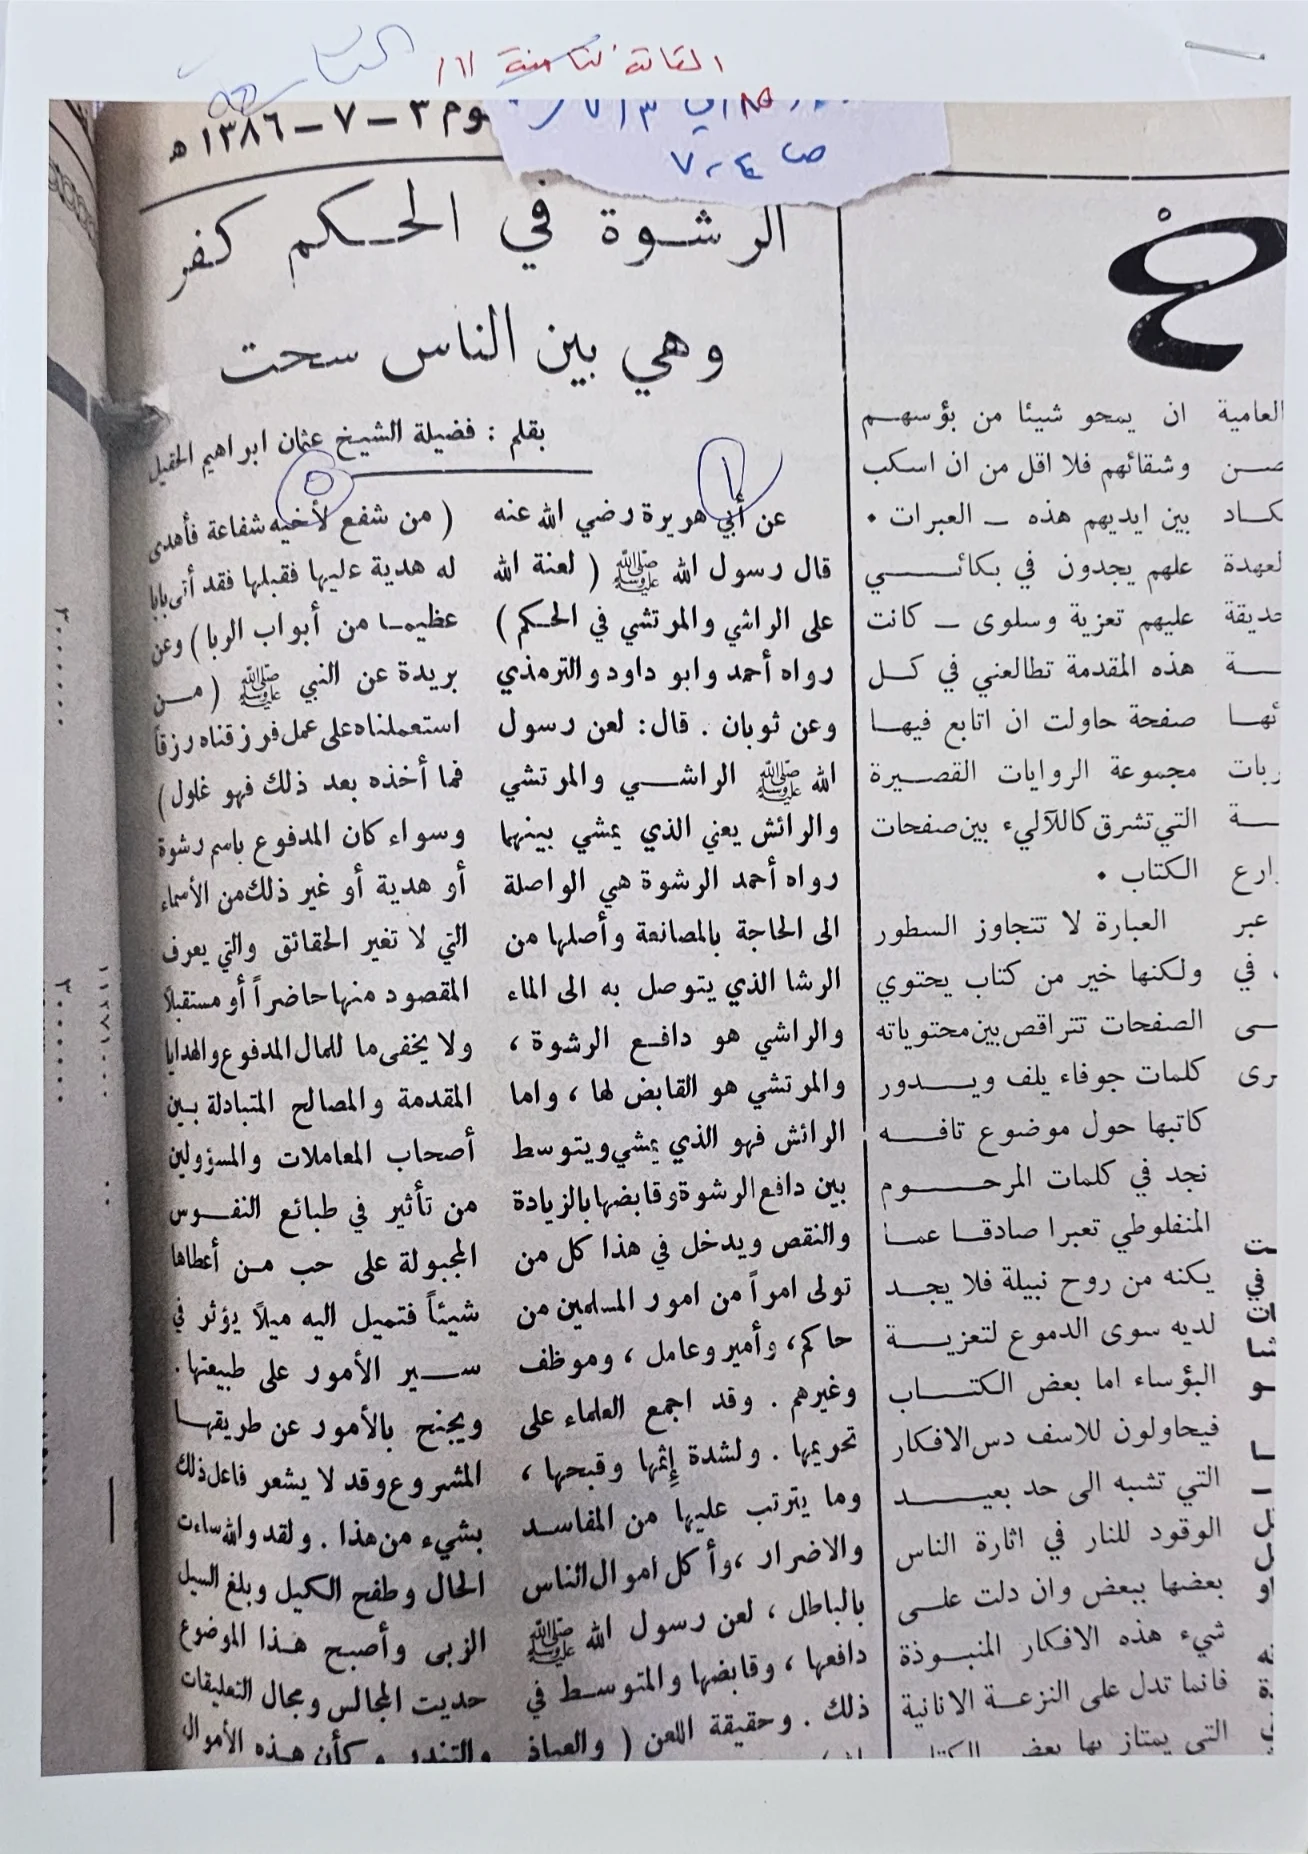 المقالة الثامنة /٦١
التاسعة
وم ٣ – ٧ – ١٣٨٦ هـ
ص ٤ - ٧
الرشوة في الحكم كفر
وهي بين الناس سحت
بقلم : فضيلة الشيخ عثمان ابراهيم الحقيل
١
عن أبي هريرة رضي الله عنه
قال رسول الله ﷺ ( لعنة الله
على الراشي والمرتشي في الحكم )
رواه أحمد وابو داود والترمذي
وعن ثوبان . قال: لعن رسول
الله ﷺ الراشي والمرتشي
والرائش يعني الذي يمشي بينهما
رواه أحمد الرشوة هي الواصلة
الى الحاجة بالمصانعة وأصلها من
الرشا الذي يتوصل به الى الماء
والراشي هو دافع الرشوة ،
والمرتشي هو القابض لها ، واما
الرائش فهو الذي يمشي ويتوسط
بين دافع الرشوة وقابضها بالزيادة
والنقص ويدخل في هذا كل من
تولى امراً من امور المسلمين من
حاكم، وأمير وعامل ، وموظف
وغيرهم . وقد اجمع العلماء على
تحريمها . ولشدة إثمها وقبحها ،
وما يترتب عليها من المفاسد
والاضرار ، وأكل اموال الناس
بالباطل ، لعن رسول الله ﷺ
دافعها ، وقابضها والمتوسط في
ذلك . وحقيقة اللعن ( والعياذ
٥
( من شفع لأخيه شفاعة فأهدى
له هدية عليها فقبلها فقد أتى بابا
عظيما من أبواب الربا ) وعن
بريدة عن النبي ﷺ ( من
استعملناه على عمل فرزقناه رزقاً
فما أخذه بعد ذلك فهو غلول )
وسواء كان المدفوع باسم رشوة
أو هدية أو غير ذلك من الأسماء
التي لا تغير الحقائق والتي يعرف
المقصود منها حاضراً أو مستقبلاً
ولا يخفى ما للمال المدفوع والهدايا
المقدمة والمصالح المتبادلة بين
أصحاب المعاملات والمسؤولين
من تأثير في طبائع النفوس
المجبولة على حب من أعطاها
شيئاً فتميل اليه ميلاً يؤثر في
سير الأمور على طبيعتها .
ويجنح بالأمور عن طريقها
المشروع وقد لا يشعر فاعل ذلك
بشيء من هذا . ولقد والله ساءت
الحال وطفح الكيل وبلغ السيل
الزبى وأصبح هذا الموضوع
حديث المجالس ومجال التعليقات
والتندر وكأن هذه الأموال
ان يمحو شيئا من بؤسهم
وشقائهم فلا اقل من ان اسكب
بين ايديهم هذه – العبرات .
علهم يجدون في بكائي
عليهم تعزية وسلوى – كانت
هذه المقدمة تطالعني في كل
صفحة حاولت ان اتابع فيها
مجموعة الروايات القصيرة
التي تشرق كاللآليء بين صفحات
الكتاب .
العبارة لا تتجاوز السطور
ولكنها خير من كتاب يحتوي
الصفحات تتراقص بين محتوياته
كلمات جوفاء يلف ويدور
كاتبها حول موضوع تافه
نجد في كلمات المرحوم
المنفلوطي تعبرا صادقا عما
يكنه من روح نبيلة فلا يجد
لديه سوى الدموع لتعزية
البؤساء اما بعض الكتاب
فيحاولون للاسف دس الافكار
التي تشبه الى حد بعيد
الوقود للنار في اثارة الناس
بعضها ببعض وان دلت على
شيء هذه الافكار المنبوذة
فانما تدل على النزعة الانانية
التي يمتاز بها بعض الكتاب
العامية
عبر
في